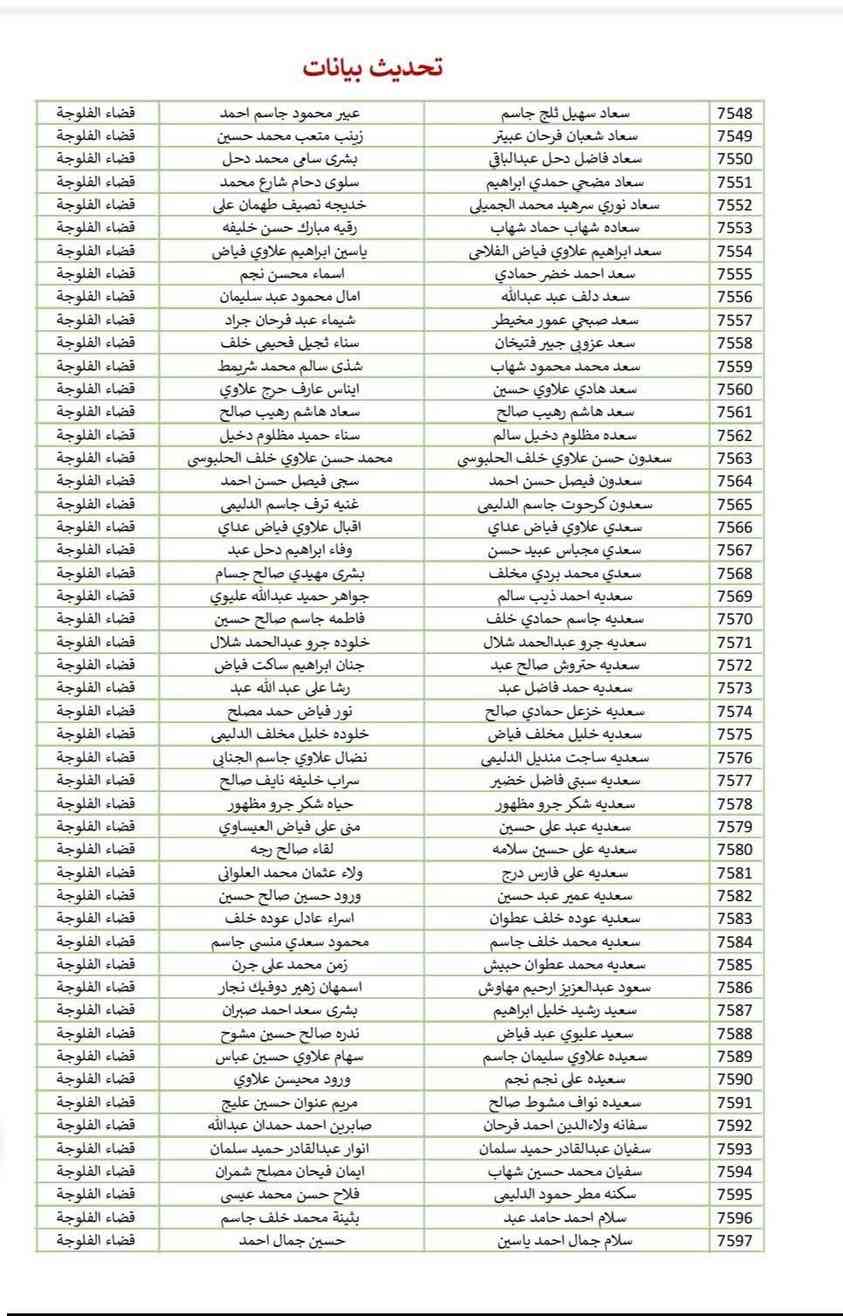 تحديث بيانات
7548 سعاد سهيل ثلج جاسم عبير محمود جاسم احمد قضاء الفلوجة
7549 سعاد شعبان فرحان عبيتر زينب متعب محمد حسين قضاء الفلوجة
7550 سعاد فاضل دحل عبدالباقي بشرى سامي محمد دحل قضاء الفلوجة
7551 سعاد مضحي حمدي ابراهيم سلوى دحام شارع محمد قضاء الفلوجة
7552 سعاد نوري سرهيد محمد الجميلي خديجه نصيف طهمان علي قضاء الفلوجة
7553 سعاده شهاب حماد شهاب رقيه مبارك حسن خليفه قضاء الفلوجة
7554 سعد ابراهيم علاوي فياض الفلاحي ياسين ابراهيم علاوي فياض قضاء الفلوجة
7555 سعد احمد خضر حمادي اسماء محسن نجم قضاء الفلوجة
7556 سعد دلف عبد عبدالله امال محمود عبد سليمان قضاء الفلوجة
7557 سعد صبحي عمور مخيطر شيماء عبد فرحان جراد قضاء الفلوجة
7558 سعد عزوبي جبير فتيخان سناء ثجيل فحيمي خلف قضاء الفلوجة
7559 سعد محمد محمود شهاب شذى سالم محمد شريمط قضاء الفلوجة
7560 سعد هادي علاوي حسين ايناس عارف حرج علاوي قضاء الفلوجة
7561 سعد هاشم رهيب صالح سعاد هاشم رهيب صالح قضاء الفلوجة
7562 سعده مظلوم دخيل سالم سناء حميد مظلوم دخيل قضاء الفلوجة
7563 سعدون حسن علاوي خلف الحلبوسي محمد حسن علاوي خلف الحلبوسي قضاء الفلوجة
7564 سعدون فيصل حسن احمد سجى فيصل حسن احمد قضاء الفلوجة
7565 سعدون كرحوت جاسم الدليمي غنيه ترف جاسم الدليمي قضاء الفلوجة
7566 سعدي علاوي فياض عداي اقبال علاوي فياض عداي قضاء الفلوجة
7567 سعدي مجباس عبيد حسن وفاء ابراهيم دحل عبد قضاء الفلوجة
7568 سعدي محمد بردي مخلف بشرى مهيدي صالح جسام قضاء الفلوجة
7569 سعديه احمد ذيب سالم جواهر حميد عبدالله عليوي قضاء الفلوجة
7570 سعديه جاسم حمادي خلف فاطمه جاسم صالح حسين قضاء الفلوجة
7571 سعديه جرو عبدالحمد شلال خلوده جرو عبدالحمد شلال قضاء الفلوجة
7572 سعديه حتروش صالح عبد جنان ابراهيم ساكت فياض قضاء الفلوجة
7573 سعديه حمد فاضل عبد رشا علي عبد الله عبد قضاء الفلوجة
7574 سعديه خزعل حمادي صالح نور فياض حمد مصلح قضاء الفلوجة
7575 سعديه خليل مخلف فياض خلوده خليل مخلف الدليمي قضاء الفلوجة
7576 سعديه ساجت منديل الدليمي نضال علاوي جاسم الجنابي قضاء الفلوجة
7577 سعديه سبتي فاضل خضير سراب خليفه نايف صالح قضاء الفلوجة
7578 سعديه شكر جرو مظهور حياه شكر جرو مظهور قضاء الفلوجة
7579 سعديه عبد علي حسين منى علي فياض العيساوي قضاء الفلوجة
7580 سعديه علي حسين سلامه لقاء صالح رجه قضاء الفلوجة
7581 سعديه علي فارس درج ولاء عثمان محمد العلواني قضاء الفلوجة
7582 سعديه عمير عبد حسين ورود حسين صالح حسين قضاء الفلوجة
7583 سعديه عوده خلف عطوان اسراء عادل عوده خلف قضاء الفلوجة
7584 سعديه محمد خلف جاسم محمود سعدي منسي جاسم قضاء الفلوجة
7585 سعديه محمد عطوان حبيش زمن محمد علي جرن قضاء الفلوجة
7586 سعود عبدالعزيز ارحيم مهاوش اسمهان زهير دوفيك نجار قضاء الفلوجة
7587 سعيد رشيد خليل ابراهيم بشرى سعد احمد صبران قضاء الفلوجة
7588 سعيد عليوي عبد فياض ندره صالح حسين مشوح قضاء الفلوجة
7589 سعيده علاوي سليمان جاسم سهام علاوي حسين عباس قضاء الفلوجة
7590 سعيده علي نجم نجم ورود محيسن علاوي قضاء الفلوجة
7591 سعيده نواف مشوط صالح مريم عنوان حسين عليج قضاء الفلوجة
7592 سفانه ولاءالدين احمد فرحان صابرين احمد حمدان عبدالله قضاء الفلوجة
7593 سفيان عبدالقادر حميد سلمان انوار عبدالقادر حميد سلمان قضاء الفلوجة
7594 سفيان محمد حسين شهاب ايمان فيحان مصلح شمران قضاء الفلوجة
7595 سكنه مطر حمود الدليمي فلاح حسن محمد عيسى قضاء الفلوجة
7596 سلام احمد حامد عبد بثينة محمد خلف جاسم قضاء الفلوجة
7597 سلام جمال احمد ياسين حسين جمال احمد قضاء الفلوجة